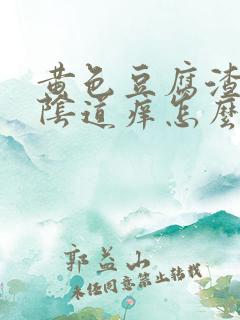 黄色豆腐渣
阴道痒怎么
郭益山
未经同意禁止转载